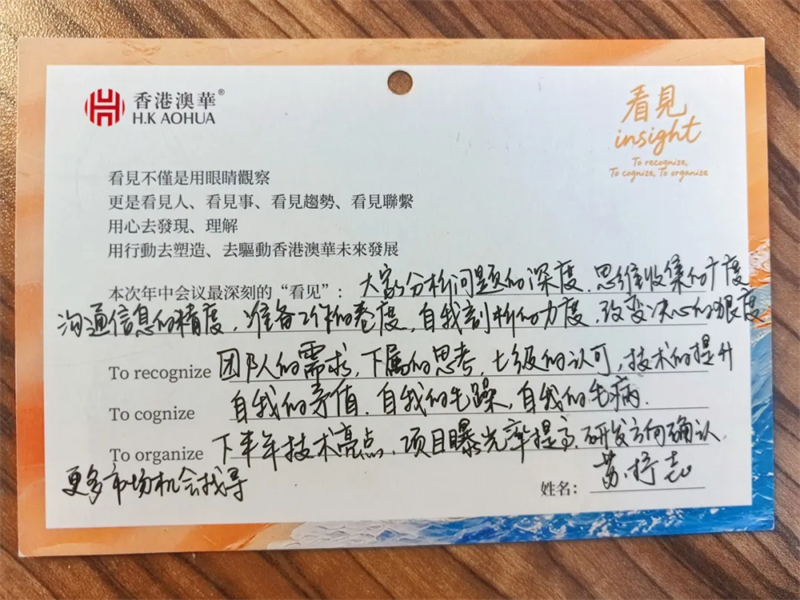 香港澳華®
H.K AOHUA
看見
insight
To recognize,
To cognize, To organize
看見不僅是用眼睛觀察
更是看見人、看見事、看見趨勢、看見聯繫
用心去發現、理解
用行動去塑造、去驅動香港澳華未來發展
本次年中会议最深刻的“看见”: 大家分析问题的深度、思维收集的广度
沟通信息的精度,准备工作的态度,自我剖析的力度,改变决心的狠度
To recognize 团队的需求,下属的思考,上级的认可,技术的提升
To cognize 自我的价值,自我的毛躁,自我的毛病.
To organize 下半年技术亮点、项目曝光率提高、研发方向确认
更多市场机会找寻
姓名: 苏 志